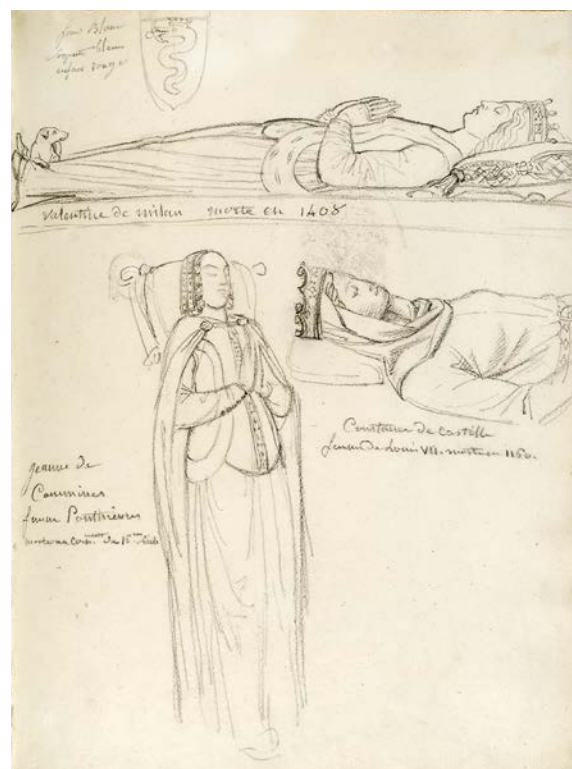 fond Blanc
serpent bleu
enfant rouge
valentine de milan morte en 1408
Constance de Castille
femme de Louis VII. morte en 1160.
jeanne de
Commines
femme Penthièvre
morte au com. du 16 siècle